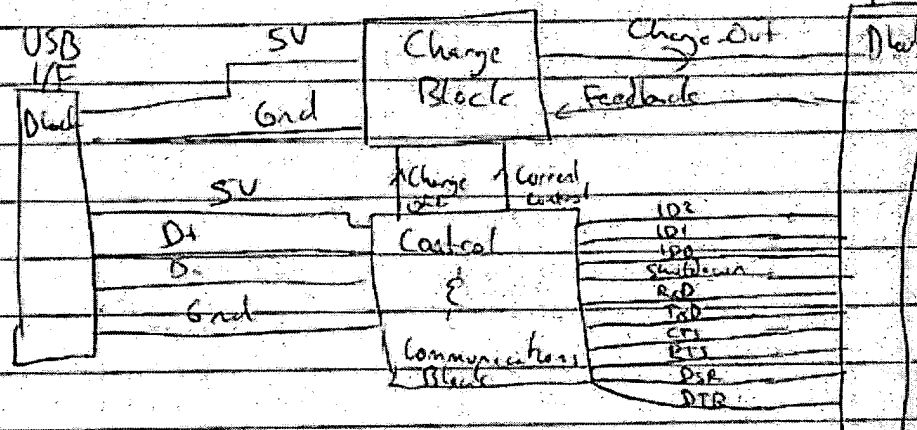 USB
I/F
Block
5V
Gnd
Charge
Block
Charge Out
Feedback
5V
D+
D-
Gnd
Charge
Current
Control
Control
&
Communications
Block
ID2
ID1
ID0
Shutdown
RxD
TxD
CTS
RTS
DSR
DTR